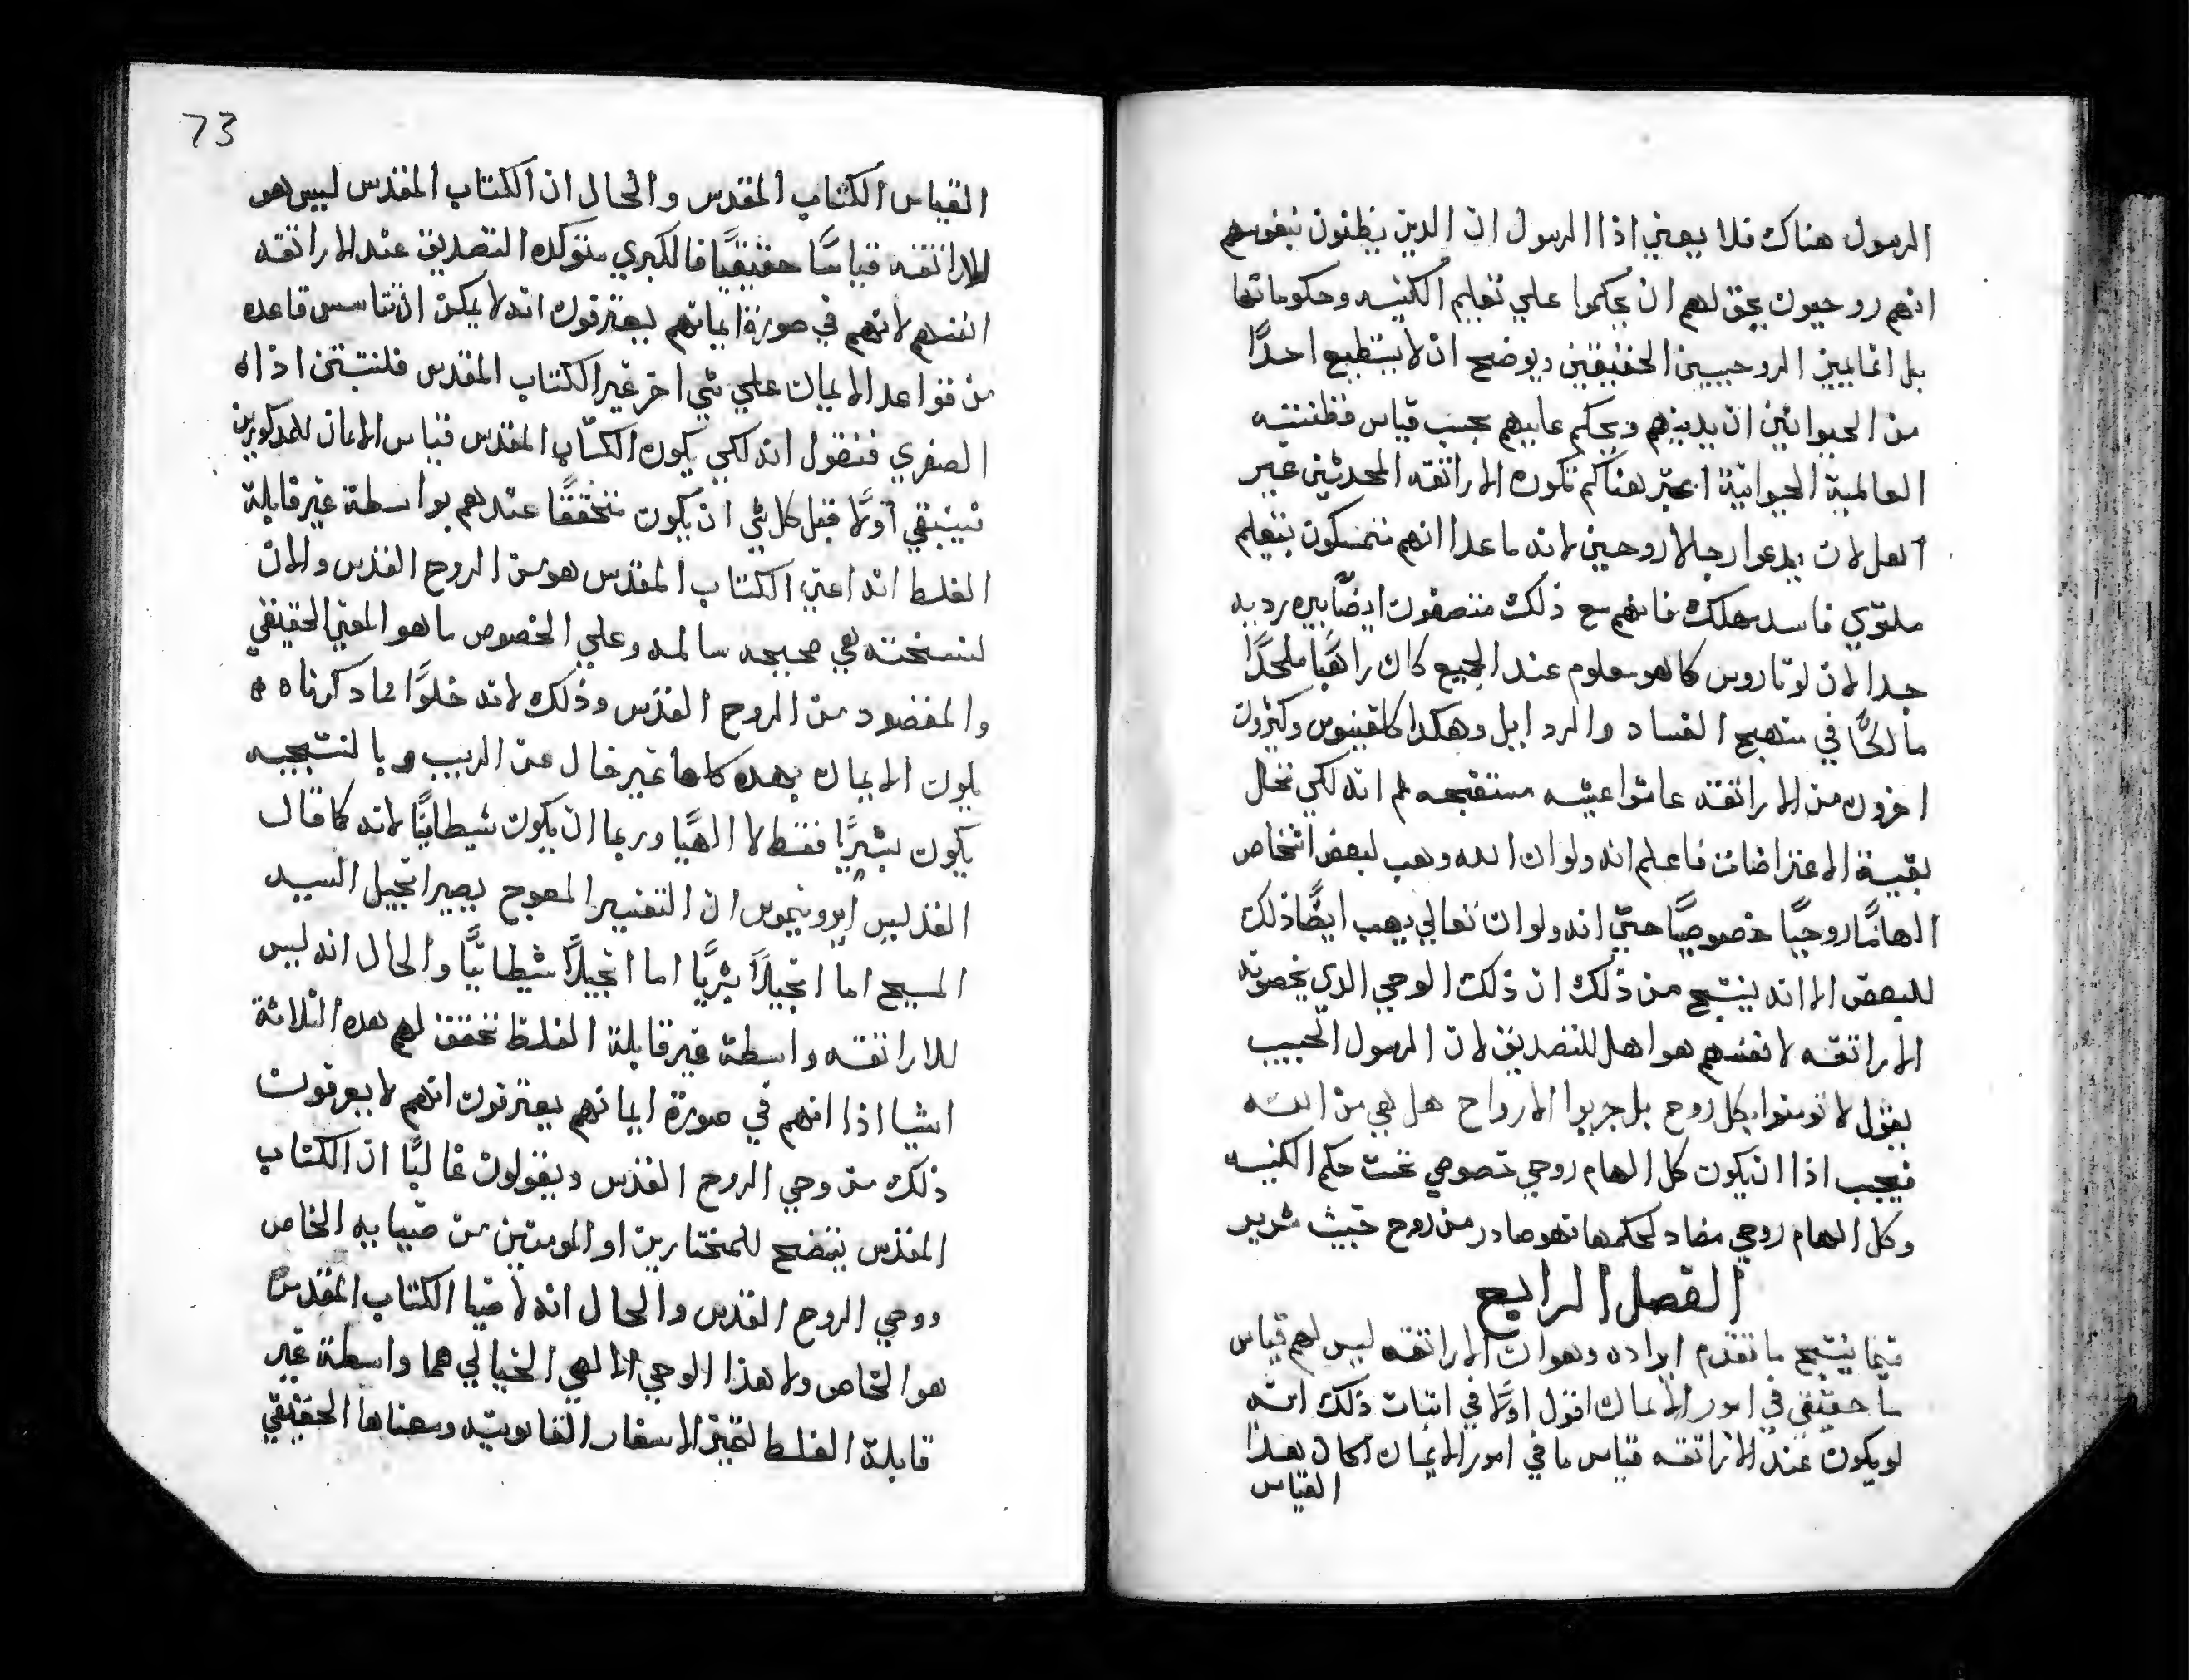 الرسول هناك فلا يعني اذا الرسول ان الدين يظنون نفوسهم
انهم روحيون يحق لهم ان يحكموا علي تعليم الكنيسه وحكوماتها
بل انما يميز الروحيين الحقيقين ويوضح ان لا يستطيع احدًا
من الحيوانين ان يدينهم ويحكم عليهم بحسب قياس فطنته
العالمية الحيوانية هناكم تكون الاراتقه المحدثين غير
اهل لان يدعوا رجالا روحين لانه ما عدا انهم متمسكون بتعليم
ملتوي فاسد مهلك فانهم مع ذلك متصفون ايضًا بسيره رديه
جدا لان لوتاروس كما هو معلوم عند الجميع كان راهبًا ملحدًا
سالكًا في منهج الفساد والردايل وهكدا كلفينوس وكثيرون
اخرون من الاراتقه عاشوا عيشه مستقبحه ثم انه لكي نحل
بقية الاعتراضات فاعلم انه ولو ان الله وهب لبعض اشخاص
الهامًا روحيًا خصوصيًا حتي انه ولو ان تعالي يهب ايضًا ذلك
للبعض الا انه ينتج من ذلك ان ذلك الوحي الدي يخصونه
الاراتقه لانفسهم هو اهل للتصديق لان الرسول الحبيب
يقول لا تومنوا بكل روح بل جربوا الارواح هل هي من الله
فيجب اذا ان يكون كل الهام روحي خصوصي تحت حكم الكنيسه
وكل الهام روحي مضاد لحكمها فهو صادر من روح خبيث شرير
الفصل الرابع
فيما ينتج ما تقدم ايراده وهو ان الاراتقه ليس لهم قياس
ما حقيقي في امور الايمان اقول اولًا في اثبات ذلك انه
لو يكون عند الاراتقه قياس ما في امور الايمان لكان هذا
القياس
73
القياس الكتاب المقدس والحال ان الكتاب المقدس ليس هو
للاراتقه قياسًا حقيقيًا فالكبري متوكده التصديق عند الاراتقه
انفسهم لانهم في صورة ايمانهم يعترفون انه لا يمكن ان تتاسس قاعده
من قواعد الايمان علي شي اخر غير الكتاب المقدس فلنتبتن اذا
الصغري فنقول انه لكي يكون الكتاب المقدس قياس الايمان للمدكورين
فينبغي اولًا قبل كل شي ان يكون متحققًا عندهم بواسطة غير قابلة
الغلط انه اعني الكتاب المقدس هو من الروح القدس والان
لنسخته هي صحيحه سالمه وعلي الخصوص ما هو المعني الحقيقي
والمقصود من الروح القدس وذلك لانه خلوًا مما دكرناه
يكون الايمان بهده كلها غير خال من الريب وبالنتيجه
يكون بشريًا فقط لا الهيًا وربما ان يكون شيطانيًا لانه كما قال
القديس ايرونيموس ان التفسير المعوج يصير انجيل السيد
المسيح اما انجيلًا بشريًا اما انجيلًا شيطانيًا والحال انه ليس
للاراتقه واسطة غير قابلة الغلط تحقق لهم هده الثلاثة
اشيا اذا انهم في صورة ايمانهم يعترفون انهم لا يعرفون
ذلك من وحي الروح القدس ويقولون غالبًا ان الكتاب
المقدس يتضح للمختارين او المومنين من ضيايه الخاص
ووحي الروح القدس والحال انه لا ضيا الكتاب المقدس
هو الخاص ولا هذا الوحي الالهي الخيالي هما واسطة غير
قابلة الغلط لتميز الاسفار القانونيه ومعناها الحقيقي